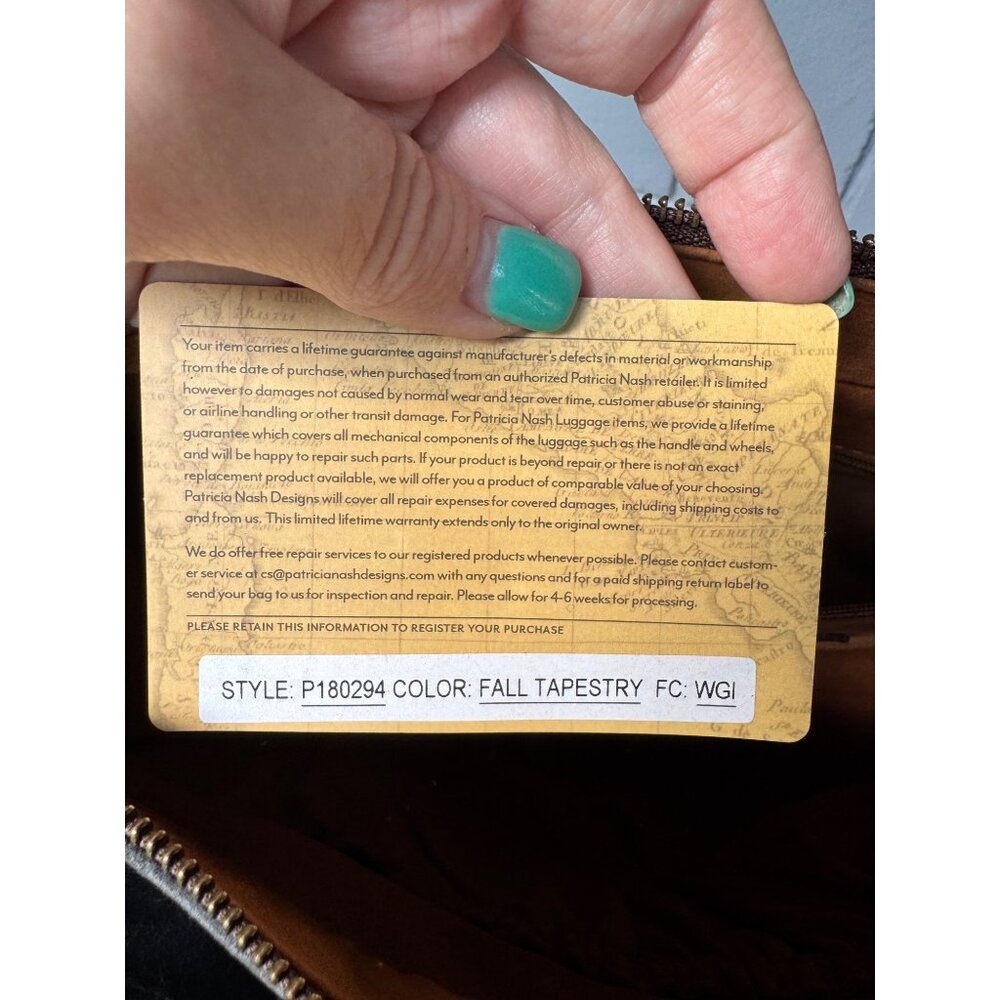 Your item carries a lifetime guarantee against manufacturer's defects in material or workmanship
from the date of purchase, when purchased from an authorized Patricia Nash retailer. It is limited
however to damages not caused by normal wear and tear over time, customer abuse or staining,
or airline handling or other transit damage. For Patricia Nash Luggage items, we provide a lifetime
guarantee which covers all mechanical components of the luggage such as the handle and wheels,
and will be happy to repair such parts. If your product is beyond repair or there is not an exact
replacement product available, we will offer you a product of comparable value of your choosing.
Patricia Nash Designs will cover all repair expenses for covered damages, including shipping costs to
and from us. This limited lifetime warranty extends only to the original owner.
We do offer free repair services to our registered products whenever possible. Please contact custom-
er service at cs@patricianashdesigns.com with any questions and for a paid shipping return label to
send your bag to us for inspection and repair. Please allow for 4-6 weeks for processing.
PLEASE RETAIN THIS INFORMATION TO REGISTER YOUR PURCHASE
STYLE: P180294 COLOR: FALL TAPESTRY FC: WGI